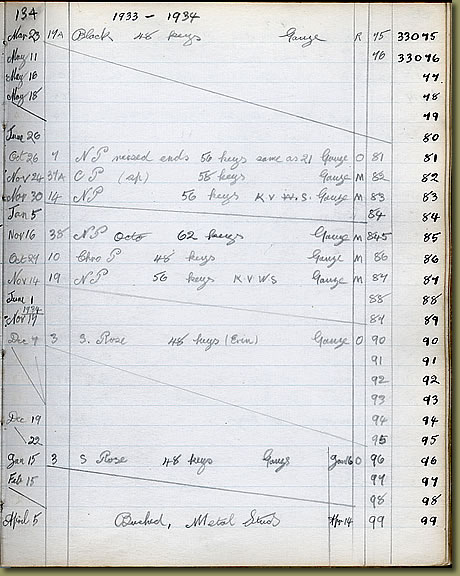 134 1933 - 1934
Mar 23 19A Black 48 keys Gauge R 75 33075
May 11 76 33076
May 18 77
May 18 78
79
June 26 80
Oct 26 7 NP raised ends 56 keys same as 21 Gauge O 81 81
Nov 24 39A CP 58 keys Gauge M 82 82
Nov 30 14 NP 56 keys K V W.S. Gauge M 83 83
Jan 5 84 84
Nov 16 38 NP Octo 62 keys Gauge M 85 85
Oct 29 10 Chro P 48 keys Gauge M 86 86
Nov 14 19 NP 56 keys K V W S Gauge M 87 87
June 1 88 88
1934
Nov 17 89 89
Dec 9 3 S. Rose 48 keys (Erin) Gauge O 90 90
91 91
92 92
93 93
Dec 19 94 94
22 95 95
Jan 15 3 S Rose 48 keys Gauge Jan 16 O 96 96
Feb 15 97 97
98 98
April 5 Bushed, Metal Studs Apr 14 99 99